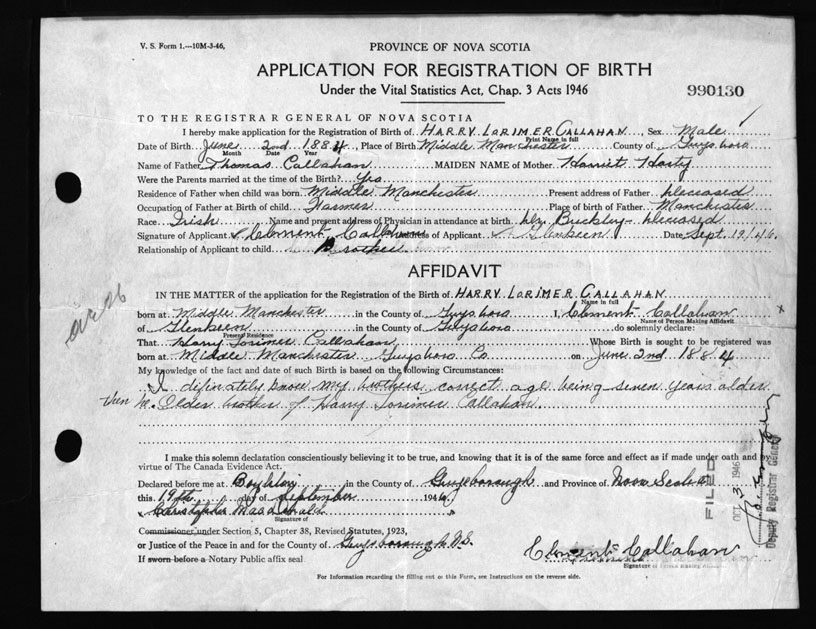 V. S. Form 1.—10M-3-46.
PROVINCE OF NOVA SCOTIA
APPLICATION FOR REGISTRATION OF BIRTH
Under the Vital Statistics Act, Chap. 3 Acts 1946
990130
TO THE REGISTRAR GENERAL OF NOVA SCOTIA
I hereby make application for the Registration of Birth of HARRY LORIMER CALLAHAN, Sex Male
Print Name in full
Date of Birth June 2nd 1884, Place of Birth Middle Manchester County of Guysboro
Month Date Year
Name of Father Thomas Callahan MAIDEN NAME of Mother Harriet Horty
Were the Parents married at the time of the Birth? Yes
Residence of Father when child was born Middle Manchester Present address of Father deceased
Occupation of Father at Birth of child Farmer Place of birth of Father Manchester
Race Irish Name and present address of Physician in attendance at birth Buckley deceased
Signature of Applicant Clement Callahan Address of Applicant Glenkeen Date Sept. 19/46.
Relationship of Applicant to child Brother
AFFIDAVIT
IN THE MATTER of the application for the Registration of the Birth of HARRY LORIMER CALLAHAN
Name in full
born at Middle Manchester in the County of Guysboro I, Clement Callahan
Name of Person Making Affidavit
of Glenkeen in the County of Guysboro do solemnly declare:
Present Residence
That Harry Lorimer Callahan Whose Birth is sought to be registered was
born at Middle Manchester Guysboro Co on June 2nd 1884
My knowledge of the fact and date of such Birth is based on the following Circumstances:
I definately know my brothers correct age being seven years older
then Older brother of Harry Lorimer Callahan.
I make this solemn declaration conscientiously believing it to be true, and knowing that it is of the same force and effect as if made under oath and by
virtue of The Canada Evidence Act.
Declared before me at Boylston in the County of Guysborough and Province of Nova Scotia
this 19th day of September 1946
Christopher MacDonald
Signature of
Commissioner under Section 5, Chapter 38, Revised Statutes, 1923,
or Justice of the Peace in and for the County of Guysborough N.S.
If sworn before a Notary Public affix seal
Clement Callahan
Signature of Person Making Affidavit
For Information regarding the filling out of this Form, see Instructions on the reverse side.
FILED
OCT 3 1946
Deputy Registrar General